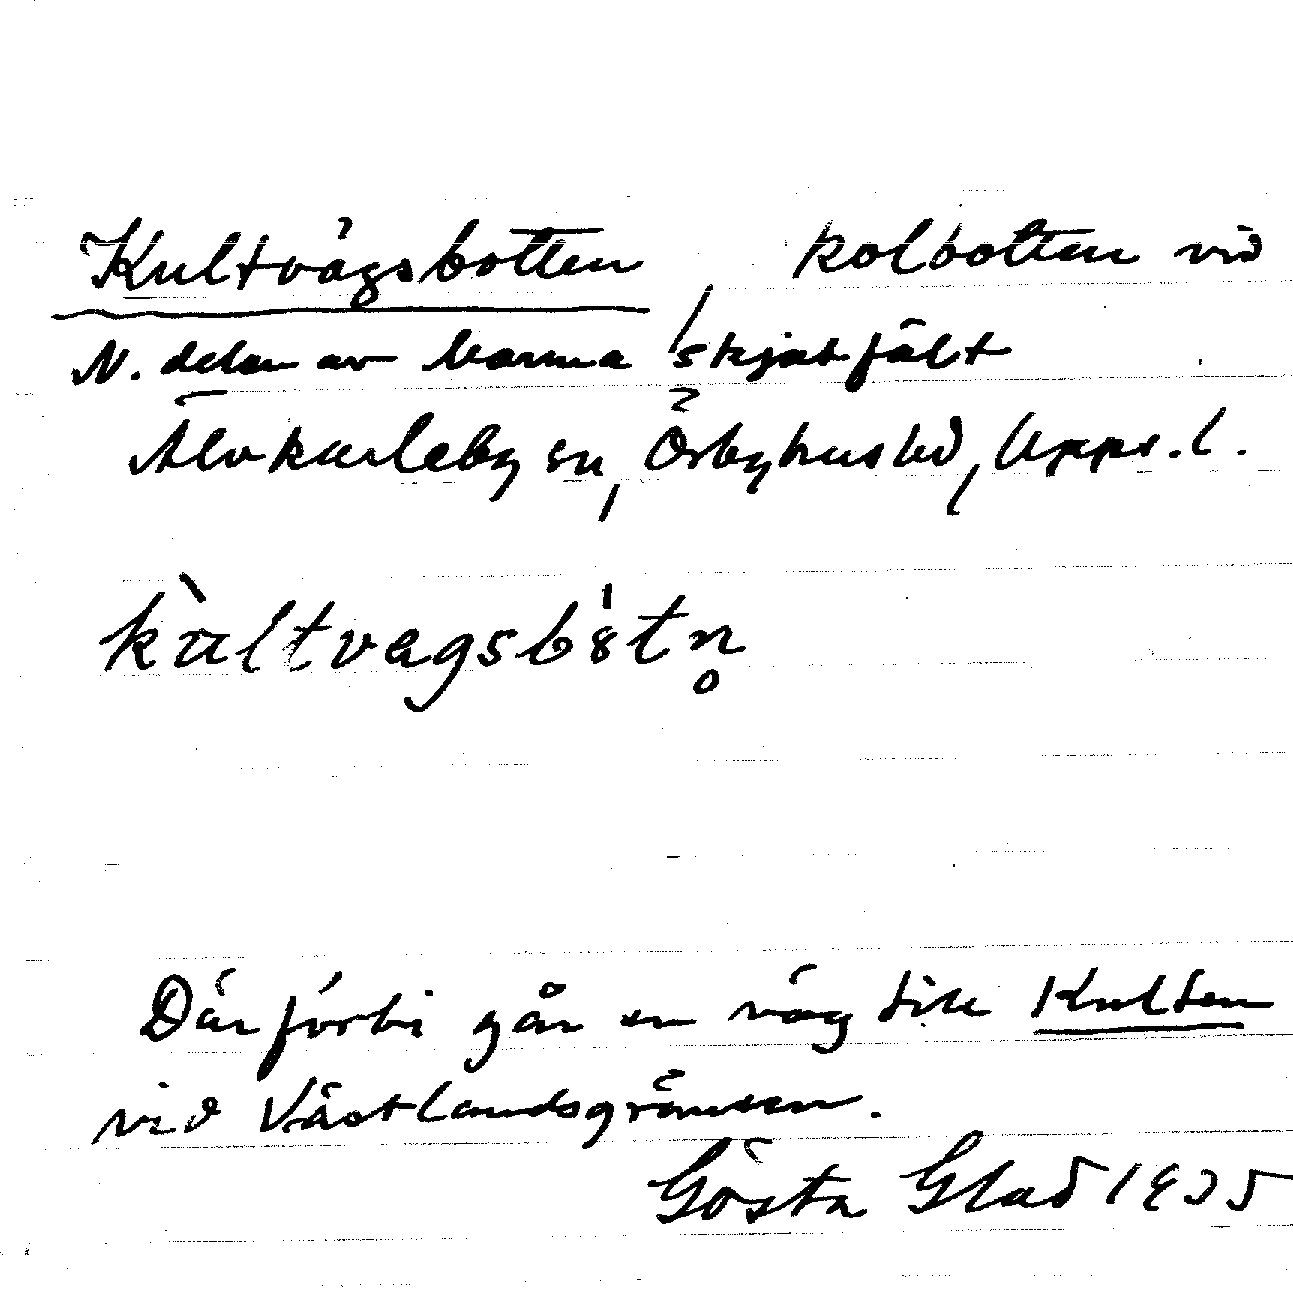 Kultvägsbotten, kolbotten vid
N. delen av Marma skjutfält
Älvkarleby sn, Örbyhus hd, Upps. l.
kultvagsbotn̥
Där förbi går en väg till Kulten
vid Västlandsgränsen.
Gösta Glad 1935